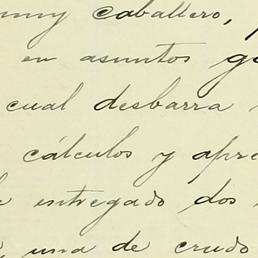 muy caballero,
en asuntos
cual desbarra
cálculos y apre
entregado dos
una de crudo